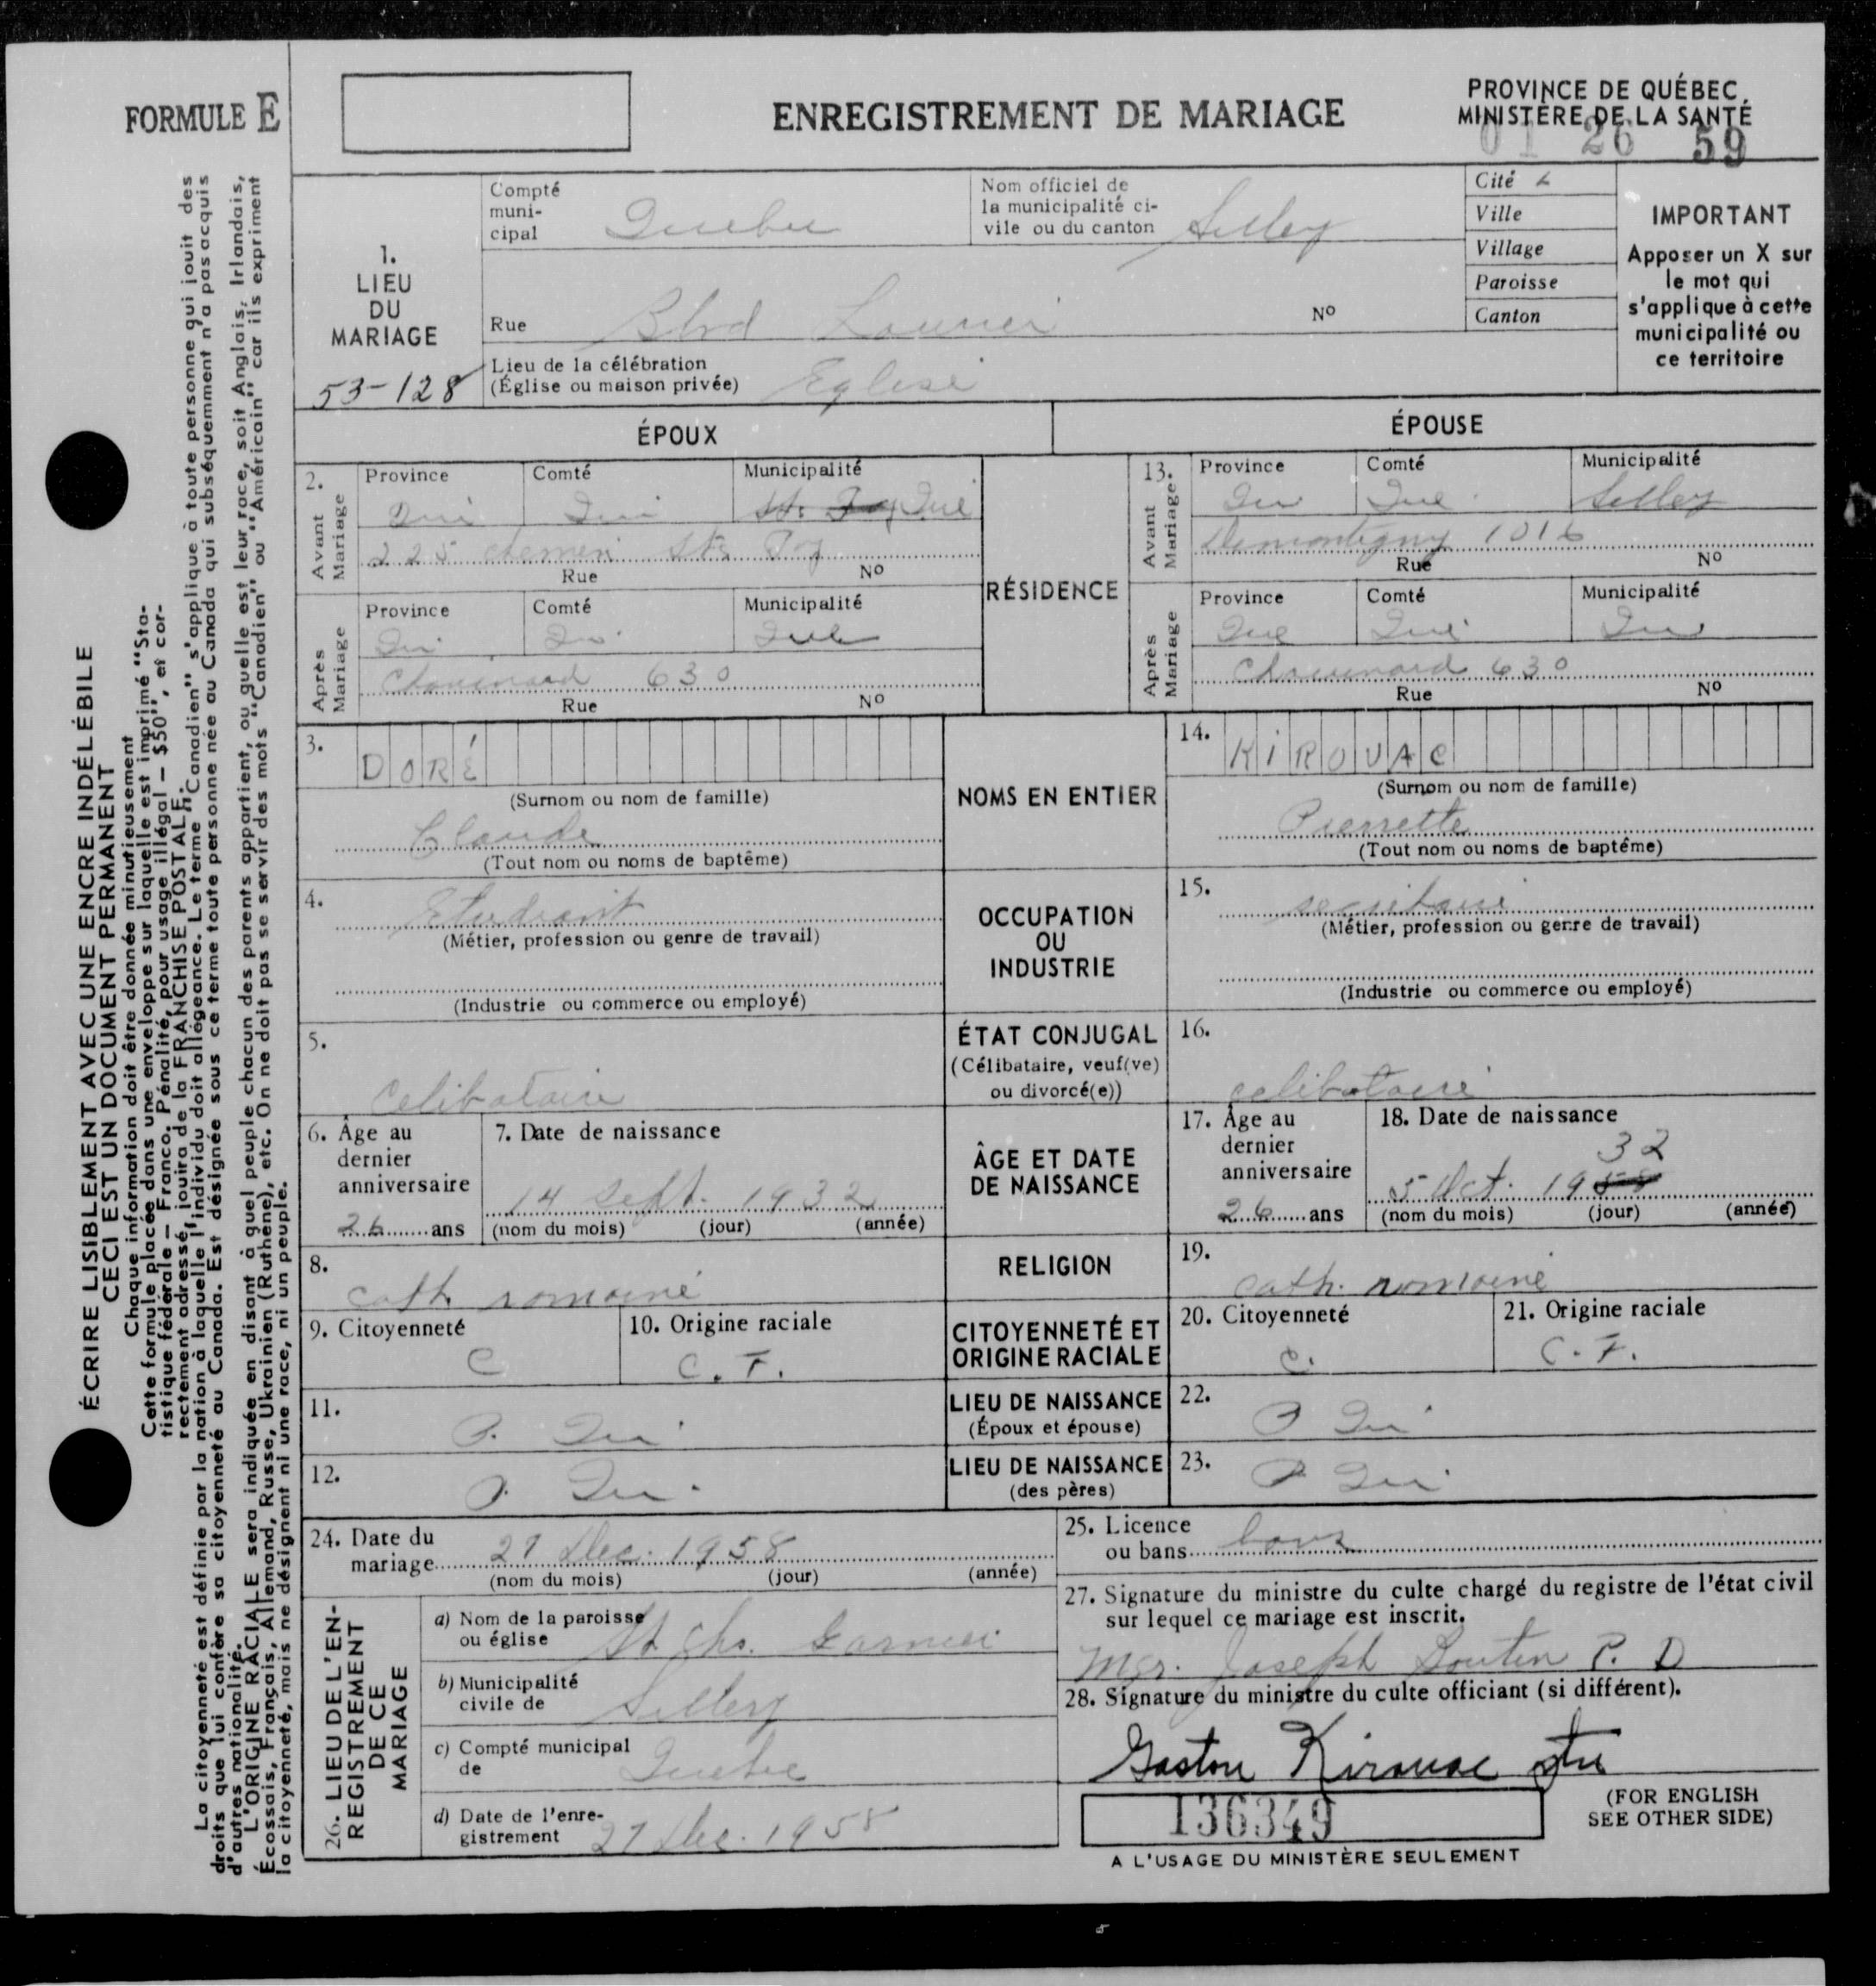 FORMULE E
ENREGISTREMENT DE MARIAGE
PROVINCE DE QUÉBEC
MINISTÈRE DE LA SANTÉ
01 26 59
ÉCRIRE LISIBLEMENT AVEC UNE ENCRE INDÉLÉBILE
CECI EST UN DOCUMENT PERMANENT
Chaque information doit être donnée minutieusement
Cette formule placée dans une enveloppe sur laquelle est imprimé "Sta-
tistique fédérale — Franco. Pénalité, pour usage illégal — $50", et cor-
rectement adressé, jouira de la FRANCHISE POSTALE.
La citoyenneté est définie par la nation à laquelle l'individu doit allégeance. Le terme "Canadien" s'applique à toute personne qui jouit des
droits que lui confère sa citoyenneté au Canada. Est désignée sous ce terme toute personne née au Canada qui subséquemment n'a pas acquis
d'autres nationalité.
L'ORIGINE RACIALE sera indiquée en disant à quel peuple chacun des parents appartient, ou quelle est leur race, soit Anglais, Irlandais,
Écossais, Français, Allemand, Russe, Ukrainien (Ruthène), etc. On ne doit pas se servir des mots "Canadien" ou "Américain" car ils expriment
la citoyenneté, mais ne désignent ni une race, ni un peuple.
1.
LIEU
DU
MARIAGE
53-128
Compté
muni-
cipal Quebec
Nom officiel de
la municipalité ci-
vile ou du canton Sillery
Cité
Ville
Village
Paroisse
Canton
IMPORTANT
Apposer un X sur
le mot qui
s'applique à cette
municipalité ou
ce territoire
Rue Blvd Laurier No
Lieu de la célébration
(Église ou maison privée) Eglise
ÉPOUX
ÉPOUSE
RÉSIDENCE
2. Avant Mariage
Province Comté Municipalité
Que Que St. Foy Que
225 chemin Ste Foy
Rue No
Après Mariage
Province Comté Municipalité
Que Que Que
Chouinard 630
Rue No
13. Avant Mariage
Province Comté Municipalité
Que Que Sillery
Demontigny 1016
Rue No
Après Mariage
Province Comté Municipalité
Que Que Que
Chouinard 630
Rue No
3. DORÉ
(Surnom ou nom de famille)
Claude
(Tout nom ou noms de baptême)
NOMS EN ENTIER
14. KIROUAC
(Surnom ou nom de famille)
Pierrette
(Tout nom ou noms de baptême)
4. Etudiant
(Métier, profession ou genre de travail)
(Industrie ou commerce ou employé)
OCCUPATION
OU
INDUSTRIE
15. secrétaire
(Métier, profession ou genre de travail)
(Industrie ou commerce ou employé)
5. Celibataire
ÉTAT CONJUGAL
(Célibataire, veuf(ve)
ou divorcé(e))
16. celibataire
6. Âge au
dernier
anniversaire
26 ans
7. Date de naissance
14 Sept. 1932
(nom du mois) (jour) (année)
ÂGE ET DATE
DE NAISSANCE
17. Âge au
dernier
anniversaire
26 ans
18. Date de naissance
32
5 Oct. 19
(nom du mois) (jour) (année)
8. cath. romaine
RELIGION
19. cath. romaine
9. Citoyenneté
C
10. Origine raciale
C. F.
CITOYENNETÉ ET
ORIGINE RACIALE
20. Citoyenneté
C.
21. Origine raciale
C. F.
11. P. Que
LIEU DE NAISSANCE
(Époux et épouse)
22. P Que
12. P. Que.
LIEU DE NAISSANCE
(des pères)
23. P. Que.
24. Date du
mariage 27 Dec. 1958
(nom du mois) (jour) (année)
25. Licence
ou bans bans
26. LIEU DE L'EN-
REGISTREMENT
DE CE
MARIAGE
a) Nom de la paroisse
ou église St Chs. Garnier
b) Municipalité
civile de Sillery
c) Compté municipal
de Quebec
d) Date de l'enre-
gistrement 27 Dec. 1958
27. Signature du ministre du culte chargé du registre de l'état civil
sur lequel ce mariage est inscrit.
Mgr. Joseph Boutin P. D
28. Signature du ministre du culte officiant (si différent).
Gaston Kirouac ptre
136349
A L'USAGE DU MINISTÈRE SEULEMENT
(FOR ENGLISH
SEE OTHER SIDE)